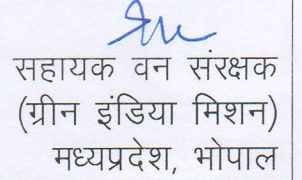 सहायक वन संरक्षक
(ग्रीन इंडिया मिशन)
मध्यप्रदेश, भोपाल